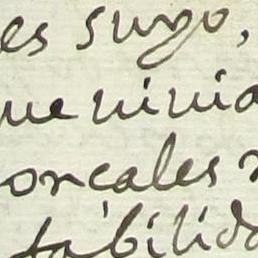 es suyo,
que ninia
oncales
tabilida